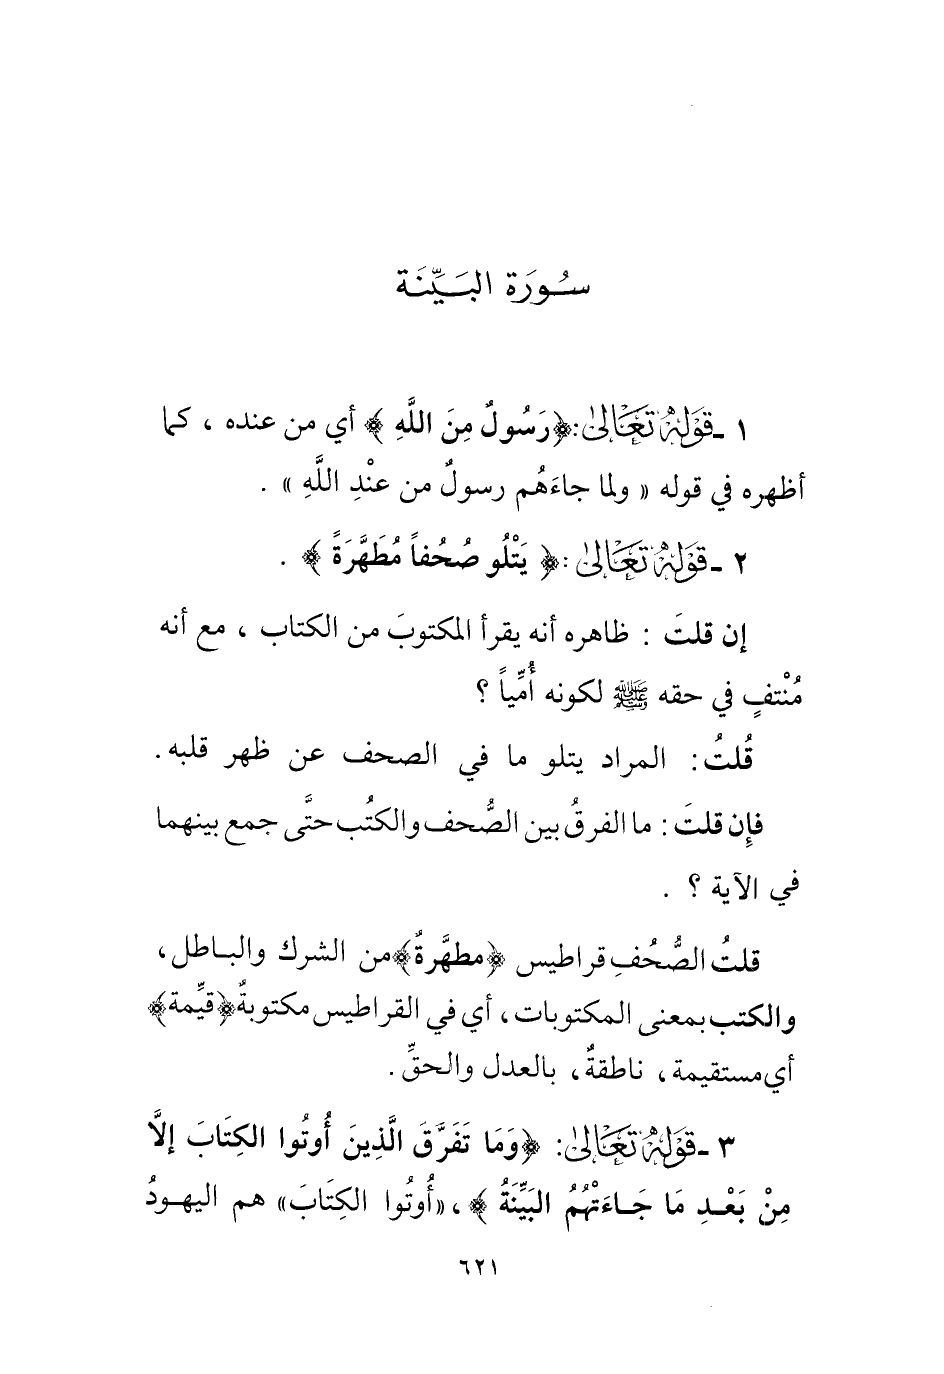 سُورَة البَيِّنَة
١ ـ قَوْلُهُ تَعَالىٰ: ﴿رَسُولٌ مِنَ اللَّهِ ﴾ أي من عنده ، كما
أظهره في قوله « ولما جاءَهُم رسولٌ من عنْدِ اللَّهِ » .
٢ ـ قَوْلُهُ تَعَالىٰ: ﴿ يَتْلُو صُحُفاً مُطَهَّرَةً ﴾ .
إن قلتَ : ظاهره أنه يقرأ المكتوبَ من الكتاب ، مع أنه
مُنْتفٍ في حقه ﷺ لكونه أُمِّياً ؟
قُلتُ: المراد يتلو ما في الصحف عن ظهر قلبه.
فإِن قلتَ: ما الفرقُ بين الصُّحف والكتُب حتَّى جمع بينهما
في الآية ؟ .
قلتُ الصُّحُفِ قراطيس ﴿مطهَّرةٌ﴾ من الشرك والباطل،
والكتب بمعنى المكتوبات، أي في القراطيس مكتوبةٌ ﴿قيِّمة﴾
أي مستقيمة، ناطقةٌ، بالعدل والحقِّ.
٣ ـ قَوْلُهُ تَعَالىٰ: ﴿وَمَا تَفَرَّقَ الَّذِينَ أُوتُوا الكِتَابَ إلاَّ
مِنْ بَعْدِ مَا جَاءَتْهُمُ البَيِّنَةُ ﴾، «أُوتُوا الكِتَابَ» هم اليهودُ
٦٢١